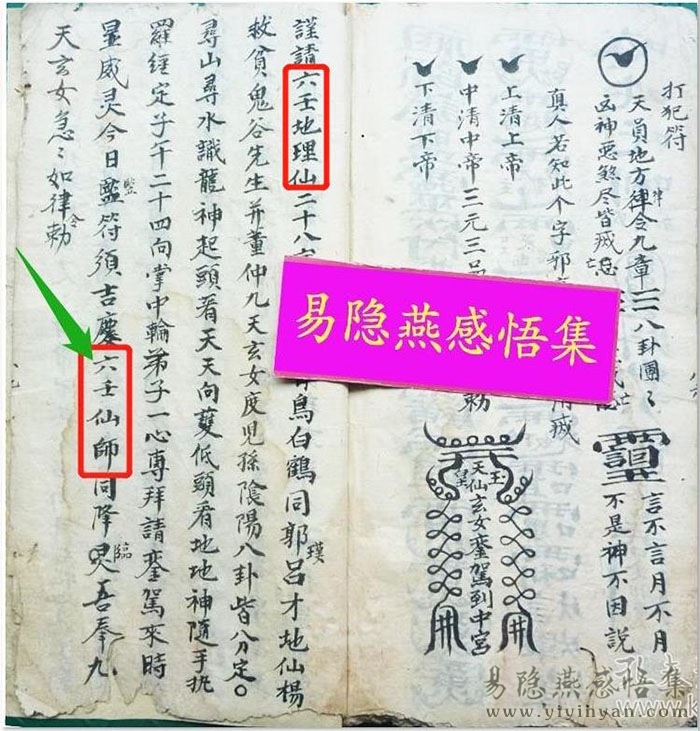 打犯符
天員地方律令九章
律
凶神惡煞尽皆
亡
八卦團〻
言不言月不月
不是神不因說
真人若知此个字邪
上清上帝
中清中帝 三元三品
勅
下清下帝
玉皇
天仙玄女鑾駕到中宮
謹請六壬地理仙二十八
鳥白鶴同郭吕才地仙楊
璞
救貧鬼谷先生并董仲九天玄女度児孫陰陽八卦皆分定。
尋山尋水識龍神起頭看天天向變低頭看地地神隨手执
羅經定子午二十四向掌中輪弟子一心專拜請鑾駕來時
显威灵今日盬符須吉慶六壬仙師同降灵吾奉九
監
臨
天玄女急〻如律勅
令
易隐燕感悟集
易隐燕感悟集
www.yiyihyan.com